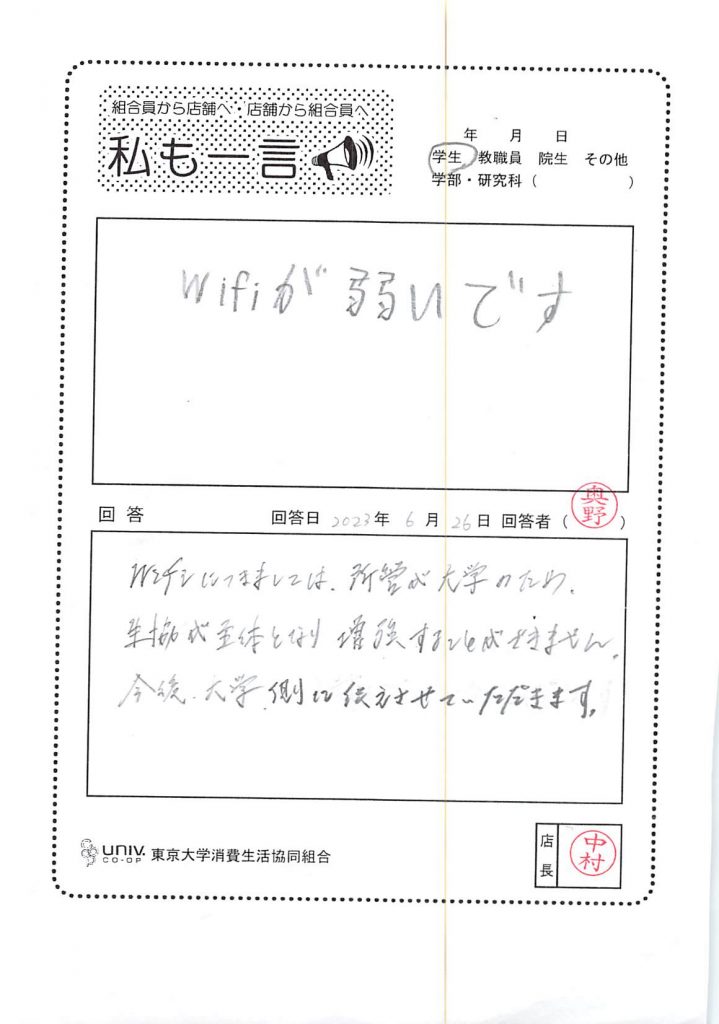 組合員から店舗へ・店舗から組合員へ
私も一言
年 月 日
学生 教職員 院生 その他
学部・研究科( )
Wifiが弱いです
回答 回答日 2023年 6月 26日 回答者(奥野)
Wifiにつきましては、所管が大学のため、
生協が主体となり 増強することができません。
今後、大学側に伝えさせていただきます。
UNIV. CO-OP 東京大学消費生活協同組合
店長 中村